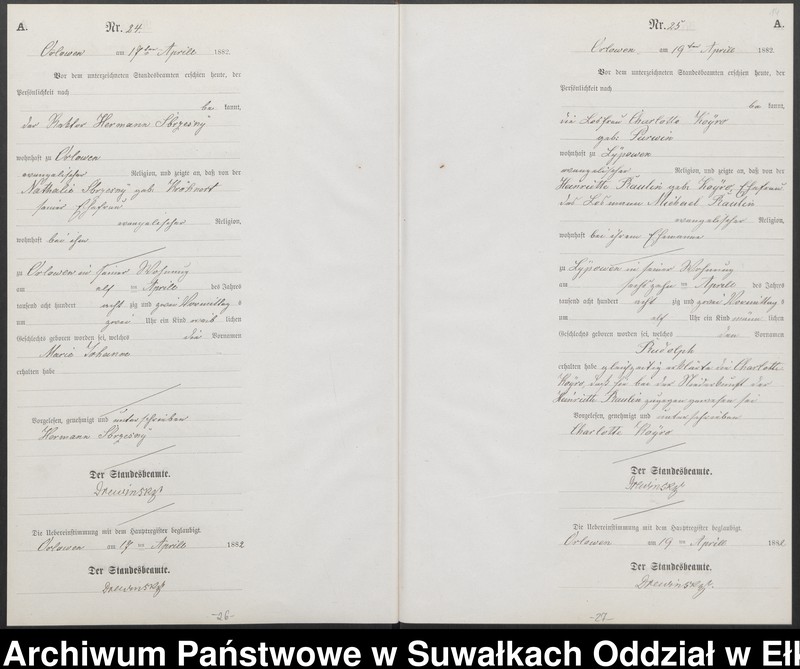 A.
Nr. 24
Orlowen am 17ten Aprill 1882.
Vor dem unterzeichneten Standesbeamten erschien heute, der
Persönlichkeit nach
be kannt,
der Hermann
wohnhaft zu Orlowen
evangelischer Religion, und zeigte an, daß von der
Nathalie geb.
seiner Ehefrau
evangelischer Religion,
wohnhaft bei ihm
zu Orlowen in seiner Wohnung
am elf ten Aprill des Jahres
tausend acht hundert acht zig und zwei Vormittag s
um zwei Uhr ein Kind weib lichen
Geschlechts geboren worden sei, welches die Vornamen
Marie Johanne
erhalten habe
Vorgelesen, genehmigt und unterschrieben
Hermann
Der Standesbeamte.
Drewinskyi
Die Uebereinstimmung mit dem Hauptregister beglaubigt.
Orlowen am 17 ten Aprill 1882
Der Standesbeamte.
Drewinskyi
-26-
Nr. 25
A.
Orlowen am 19ten Aprill 1882.
Vor dem unterzeichneten Standesbeamten erschien heute, der
Persönlichkeit nach
be kannt,
die Losfrau Charlotte Koÿro
geb.
wohnhaft zu Lÿpowen
evangelischer Religion, und zeigte an, daß von der
Henriette Raulin geb. Koÿro, Ehefrau
des Losmann Michael Raulin
evangelischer Religion,
wohnhaft bei ihrem Ehemanne
zu Lÿpowen in seiner Wohnung
am sechszehn ten Aprill des Jahres
tausend acht hundert acht zig und zwei Vormittag s
um elf Uhr ein Kind männ lichen
Geschlechts geboren worden sei, welches den Vornamen
Rudolph
erhalten habe gleichzeitig erklärte die Charlotte
Koÿro, daß sie bei der Niederkunft der
Henriette Raulin zugegen gewesen sei
Vorgelesen, genehmigt und unterschrieben
Charlotte Koÿro
Der Standesbeamte.
Drewinskyi
Die Uebereinstimmung mit dem Hauptregister beglaubigt.
Orlowen am 19 ten Aprill 1882.
Der Standesbeamte.
Drewinskyi
-27-
Archiwum Państwowe w Suwałkach Oddział w Eł